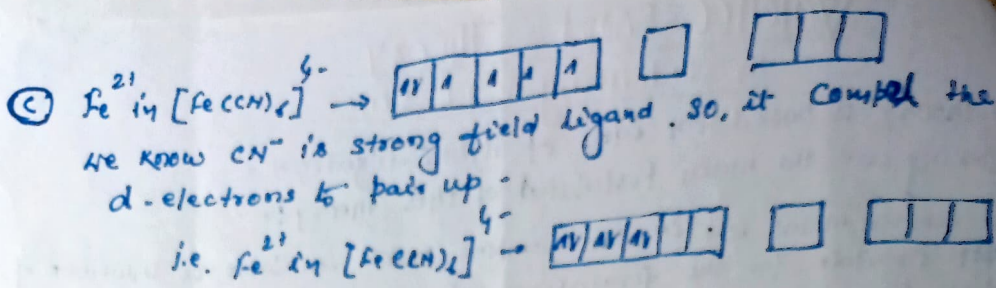 (c) Fe²⁺ in [Fe(CN)₆]⁴⁻ → 1⇂ 1 1 1 1
We know CN⁻ is strong field ligand. So, it compel the
d-electrons to pair up.
i.e. Fe²⁺ in [Fe(CN)₆]⁴⁻ → 1⇂ 1⇂ 1⇂